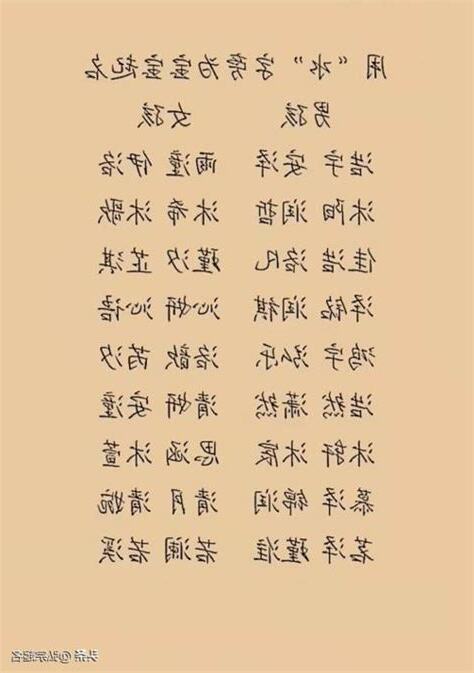 用“水”字旁为宝宝起名
男孩 女孩
浩宇 安泽 雨潼 伊洛
沐阳 润哲 沐希 沐歌
佳浩 洛凡 瑾汐 芷淇
泽铭 润祺 沁妍 沁语
鸿宇 泓乐 洛歆 芮汐
浩然 潇然 清妍 安潼
沐轩 沐宸 思涵 沐萱
慕泽 锦润 清月 清婉
若泽 瑾淮 若澜 若溪
头条